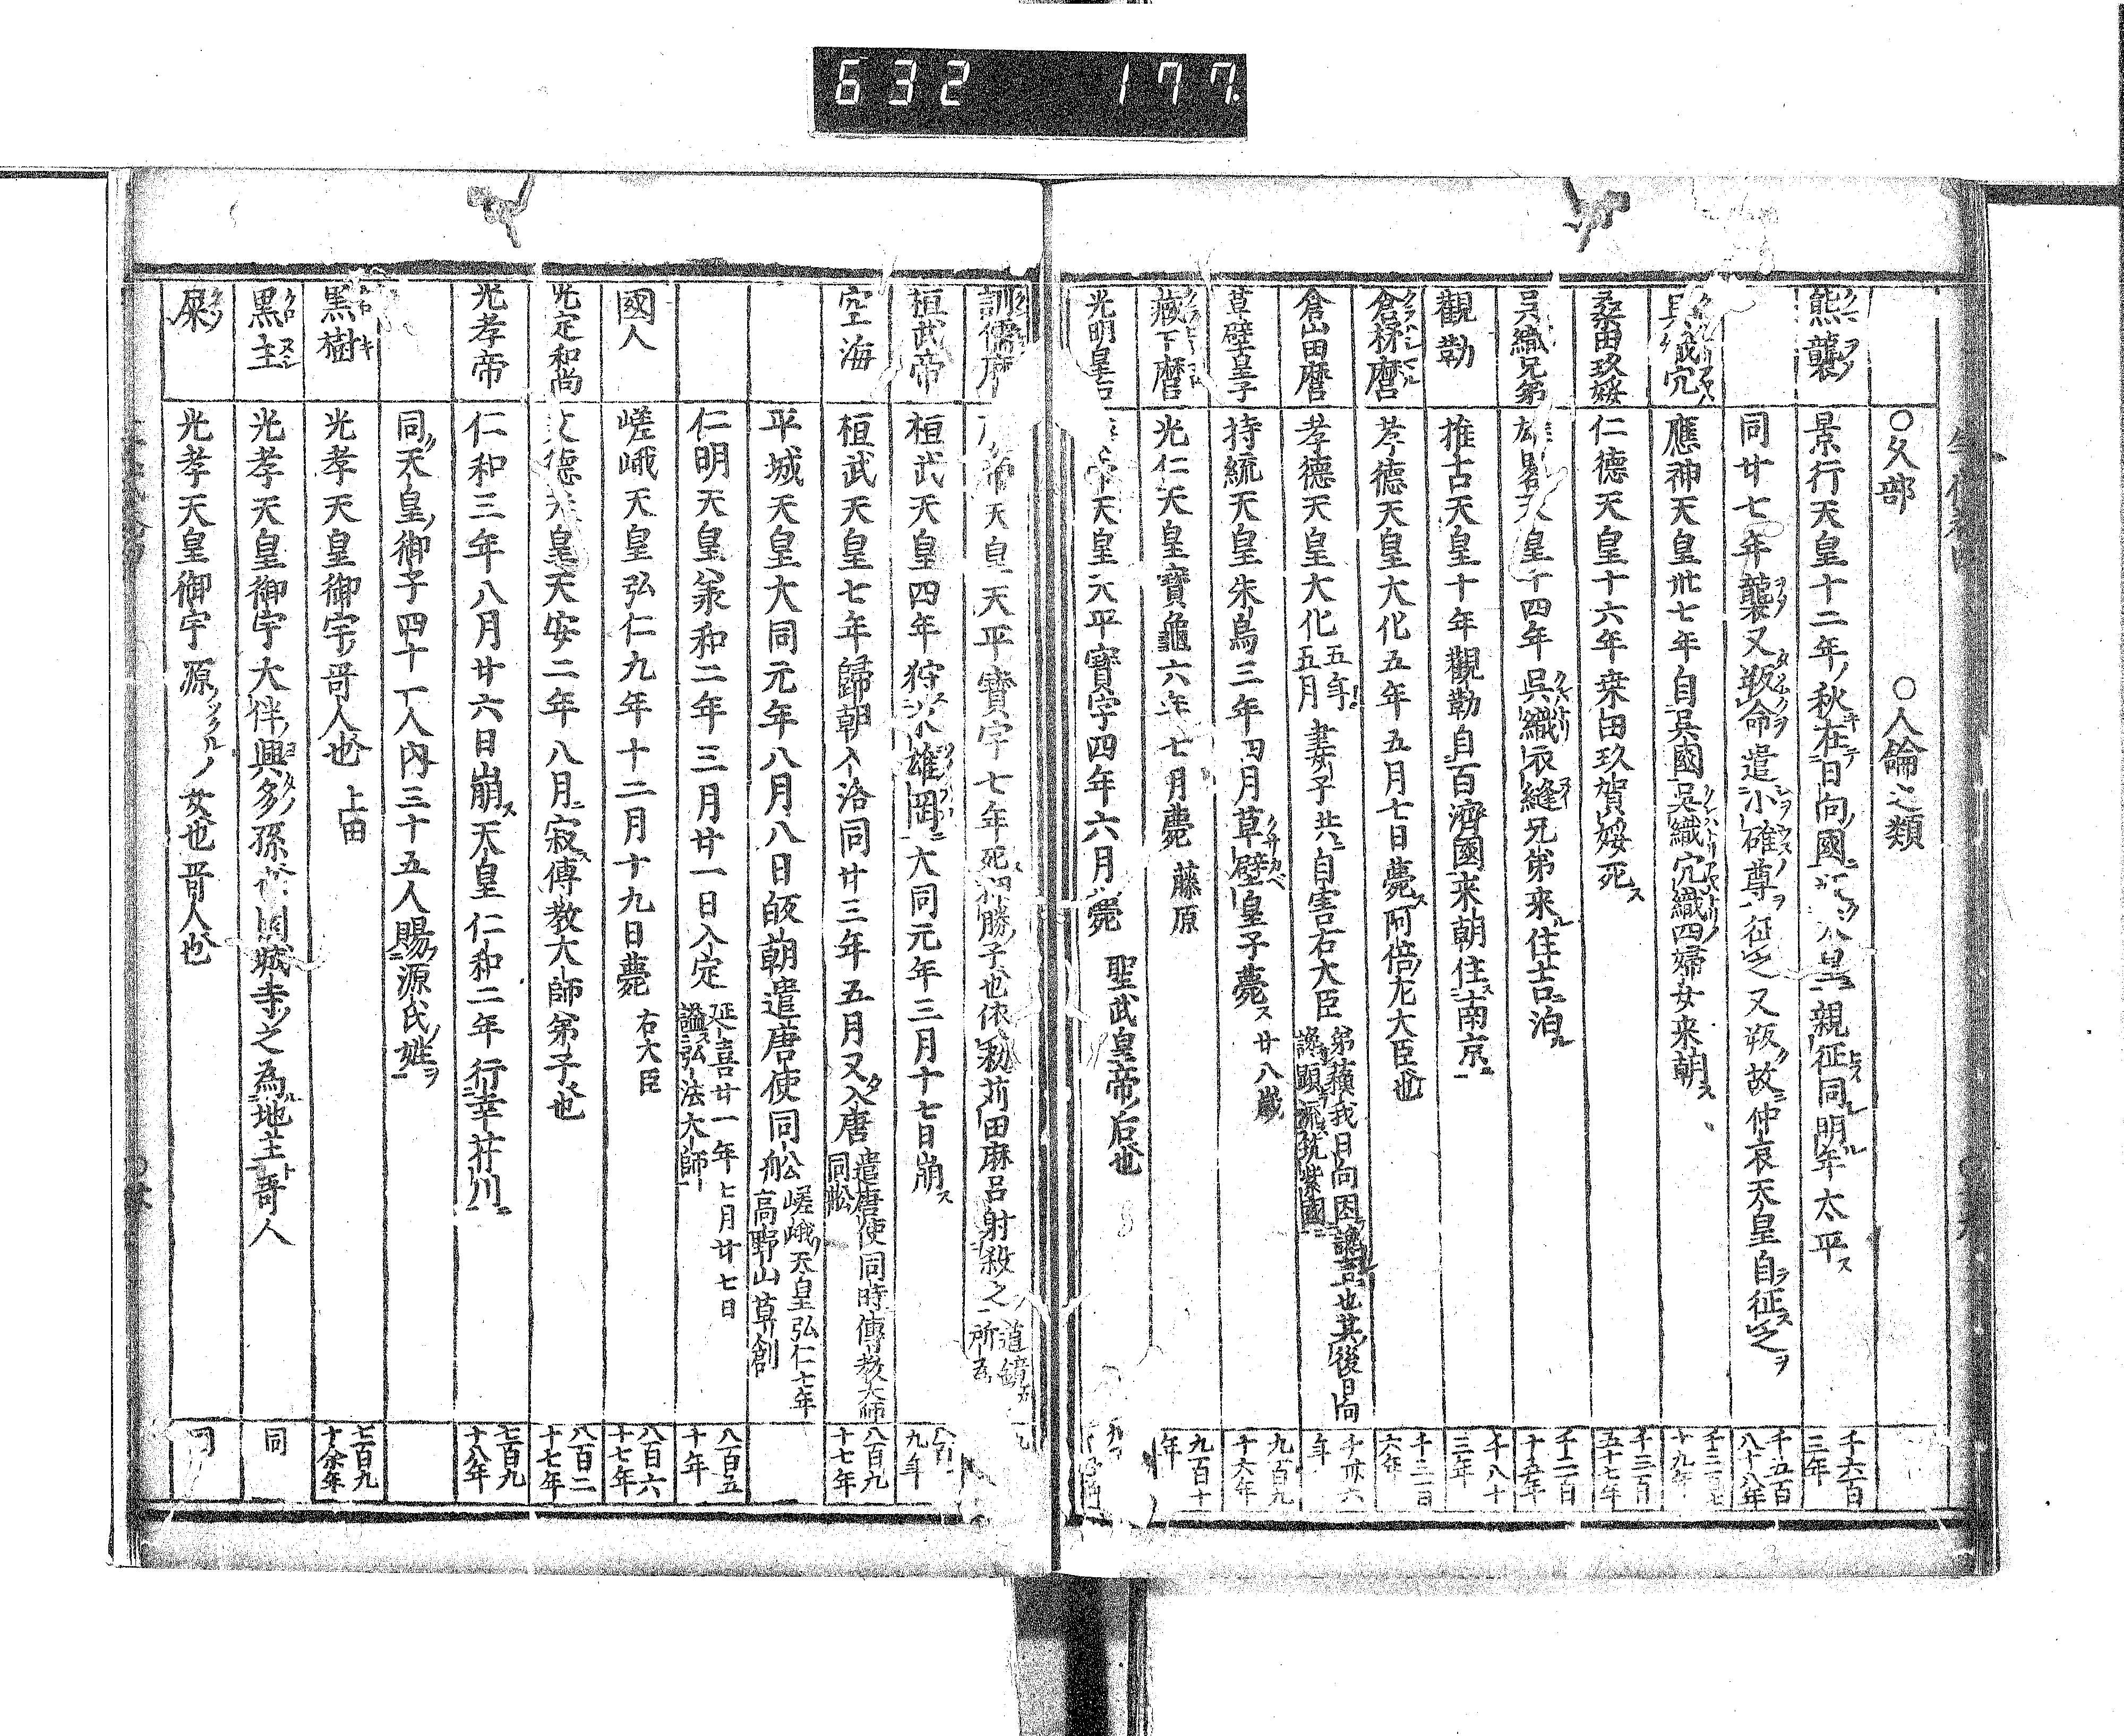 632 177.
○久部 ○人倫之類
熊襲 景行天皇十二年秋在日向國 親征同明年太平 千六百三年
同廿七年襲又叛命遣小碓尊征之又叛故仲哀天皇自征之 千五百八十八年
應神天皇卅七年自吳國吳織穴織四婦女来朝
桑田玖 仁德天皇十六年桒田玖賀媛死 千三百五十七年
吳織兄弟 天皇十四年吳織衣縫兄弟來住吉泊 千二百十五年
觀勒 推古天皇十年觀勒自百濟國来朝住南京 千八十三年
倉梯麿 孝德天皇大化五年五月七日薨阿倍左大臣也
倉山田麿 孝德天皇大化五年五月妻子共自害右大臣 弟蘓我日向因讒言也其後日向讒顕流筑紫國
草壁皇子 持統天皇朱鳥三年四月草壁皇子薨 廿八歲 九百九十六年
藏下麿 光仁天皇寶龜六年七月薨 藤原 九百十一年
光明皇后 天皇天平寶字四年六月薨 聖武皇帝后也
訓儒 天平寶字七年死 勝子也依 苅田麻呂射殺之 道鏡 所
桓武帝 桓武天皇四年狩 雄岡 大同元年三月十七日崩
空海 桓武天皇七年歸朝入洛同廿三年五月又入唐 遣唐使同時傳教大師同舩 八百九十七年
平城天皇大同元年八月八日皈朝遣唐使同舩 嵯峨天皇弘仁七年高野山草創
仁明天皇義和二年三月廿一日入定 延喜廿一年七月廿七日謚弘法大師 八百五十年
國人 嵯峨天皇弘仁九年十二月十九日薨 右大臣 八百六十七年
光定和尚 文德天皇天安二年八月寂傳教大師弟子也 八百二十七年
光孝帝 仁和三年八月廿六日崩天皇仁和二年行幸芹川 七百九十八年
同天皇御子四十一人内三十五人賜源氏姓
黒樹 光孝天皇御宇哥人也 上田 七百九十余年
黒主 光孝天皇御宇大伴興多孫 園城寺之為地主哥人 同
屎 光孝天皇御宇源ツクルノ女也哥人也 同